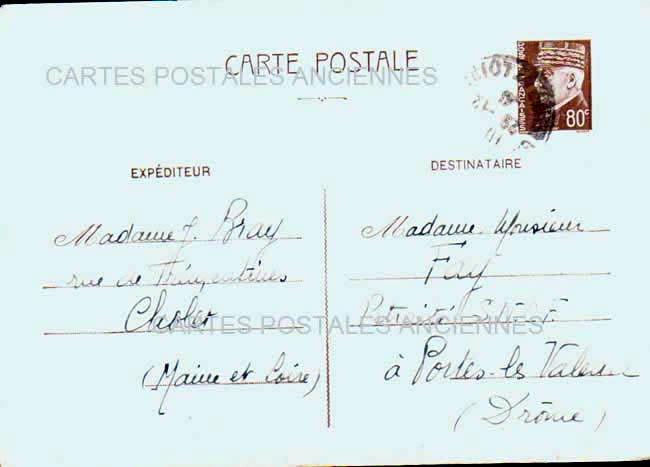 CARTE POSTALE
CARTES POSTALES ANCIENNES
POSTES FRANÇAISES
80c
EXPÉDITEUR
Madame J. Bray
rue de Trémentines
Cholet
(Maine et Loire)
DESTINATAIRE
Madame Monsieur
Fay
à Portes-les Valence
(Drôme)
CARTES POSTALES ANCIENNES